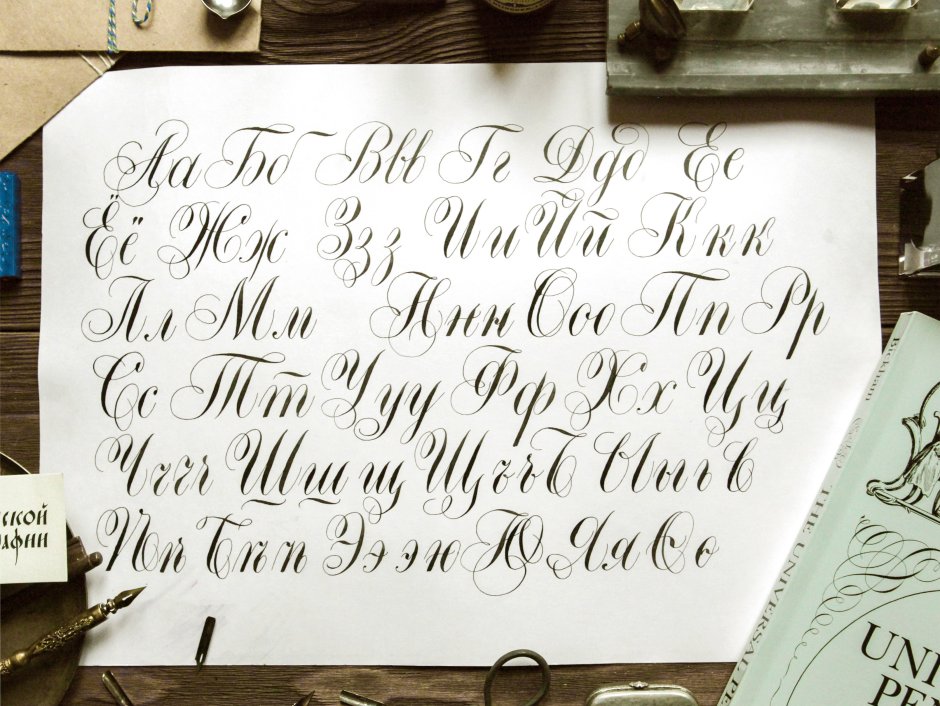 Аа Бб Ввв Гг Ддд Ее
Ёё Жж Ззз Ии Йй Ккк
Лл Мм Ннн Ооо Пп Рр
Сс Тт Ууу Фф Хх Цц
Ччч Шш щ Щъъ Ыыь Ь
Ѣѣ Ѣѣѣ Эээю Ю Яя Ѳѳ
ской
афии
Bickham
THE UNIVERSAL PE
UNI
PEN